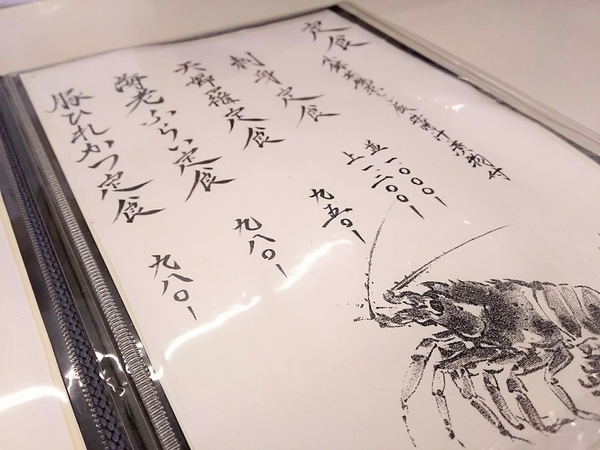 定食
小鉢 飯 味噌汁 漬物付
刺身定食 並 一、〇〇〇ー
上 一、二〇〇ー
天婦羅定食 九五〇ー
海老ふらい定食 九八〇ー
豚ひれかつ定食 九八〇ー